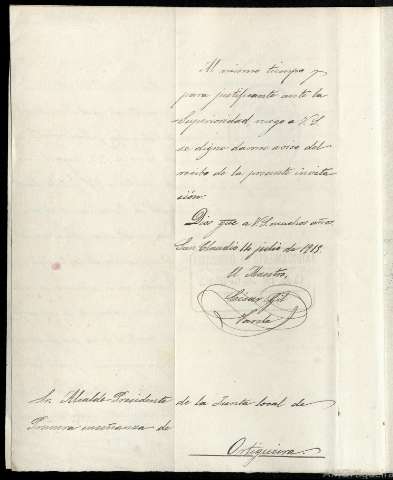 Al mismo tiempo y
para justificante ante la
Superioridad ruego a V.S.
se digne darme aviso del
recibo de la presente invita
ción.
Dios gue a V.S. muchos años.
San Claudio 14 julio de 1915.
El Maestro,
César Gil
Varela
Sr. Alcalde-Presidente de la Junta local de
Primera enseñanza de
Ortigueira.